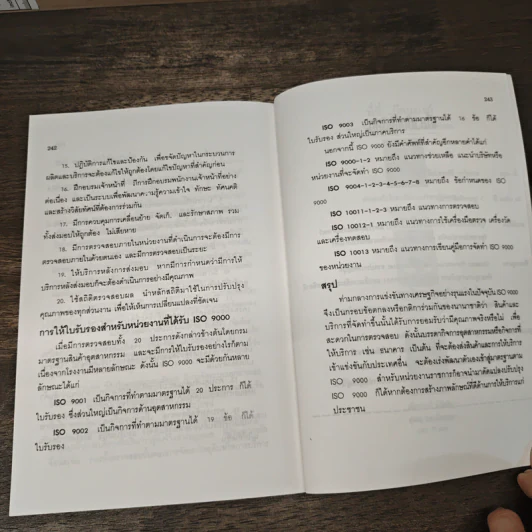 242
15. ปฏิบัติการแก้ไขและป้องกัน เพื่อขจัดปัญหาในกระบวนการ
ผลิตและบริการจะต้องแก้ไขให้ถูกต้องโดยแก้ไขปัญหาที่สำคัญก่อน
16. ฝึกอบรมเจ้าหน้าที่ มีการฝึกอบรมพนักงานเจ้าหน้าที่อย่าง
ต่อเนื่อง และเป็นระบบเพื่อพัฒนาความรู้ความเข้าใจ ทักษะ ทัศนคติ
และสร้างวิสัยทัศน์ที่ต้องการร่วมกัน
17. มีการควบคุมการเคลื่อนย้าย จัดเก็บ และรักษาสภาพ รวม
ทั้งส่งมอบให้ถูกต้อง ไม่เสียหาย
18. มีการตรวจสอบภายในหน่วยงานที่ดำเนินการจะต้องมีการ
ตรวจสอบภายในด้วยตนเอง และมีการตรวจสอบเป็นระยะ
19. ให้บริการหลังการส่งมอบ หากมีการกำหนดว่ามีการให้
บริการหลังส่งมอบก็จะต้องดำเนินการอย่างมีคุณภาพ
20. ใช้สถิติตรวจสอบผล นำหลักสถิติมาใช้ในการปรับปรุง
คุณภาพของทุกส่วนงาน เพื่อให้เห็นการเปลี่ยนแปลงที่ชัดเจน
การให้ใบรับรองสำหรับหน่วยงานที่ได้รับ ISO 9000
เมื่อมีการตรวจสอบทั้ง 20 ประการดังกล่าวข้างต้นโดยกรม
มาตรฐานสินค้าอุตสาหกรรม และจะมีการให้ใบรับรองอย่างไรก็ตาม
เนื่องจากโรงงานมีหลายลักษณะ ดังนั้น ISO 9000 จะมีด้วยกันหลาย
ลักษณะได้แก่
ISO 9001 เป็นกิจการที่ทำตามมาตรฐานได้ 20 ประการ ก็ได้
ใบรับรอง ซึ่งส่วนใหญ่เป็นกิจการด้านอุตสาหกรรม
ISO 9002 เป็นกิจการที่ทำตามมาตรฐานได้ 19 ข้อ ก็ได้
ใบรับรอง
243
ISO 9003 เป็นกิจการที่ทำตามมาตรฐานได้ 16 ข้อ ก็ได้
ใบรับรอง ส่วนใหญ่เป็นภาคบริการ
นอกจากนี้ ISO 9000 ยังมีคำศัพท์ที่สำคัญอีกหลายคำได้แก่
ISO 9000-1-2 หมายถึง แนวทางช่วยเหลือ แนะนำบริษัทหรือ
หน่วยงานที่จะจัดทำ ISO 9000
ISO 9004-1-2-3-4-5-6-7-8 หมายถึง ข้อกำหนดของ ISO
9000
ISO 10011-1-2-3 หมายถึง แนวทางการตรวจสอบ
ISO 10012-1 หมายถึง แนวทางการใช้เครื่องมือตรวจ เครื่องวัด
และเครื่องทดสอบ
ISO 10013 หมายถึง แนวทางการเขียนคู่มือการจัดทำ ISO 9000
ของหน่วยงาน
สรุป
ท่ามกลางการแข่งขันทางเศรษฐกิจอย่างรุนแรงในปัจจุบัน ISO 9000
จึงเป็นกรอบข้อตกลงหรือกติการ่วมกันของนานาชาติว่า สินค้าและ
บริการที่จัดทำขึ้นนั้นได้รับการยอมรับว่ามีคุณภาพจริงหรือไม่ เพื่อ
สะดวกในการตรวจสอบ ดังนั้นบรรดากิจการอุตสาหกรรมหรือกิจการที่
ให้บริการ เช่น ธนาคาร เป็นต้น ที่จะต้องส่งสินค้าและการให้บริการ
เข้าแข่งขันกับประเทศอื่น จะต้องเร่งพัฒนาตัวเองเข้าสู่มาตรฐานตาม
ISO 9000 สำหรับหน่วยงานราชการก็อาจนำมาดัดแปลงปรับปรุง
ISO 9000 ก็ได้หากต้องการสร้างภาพลักษณ์ที่ดีด้านการให้บริการแก่
ประชาชน